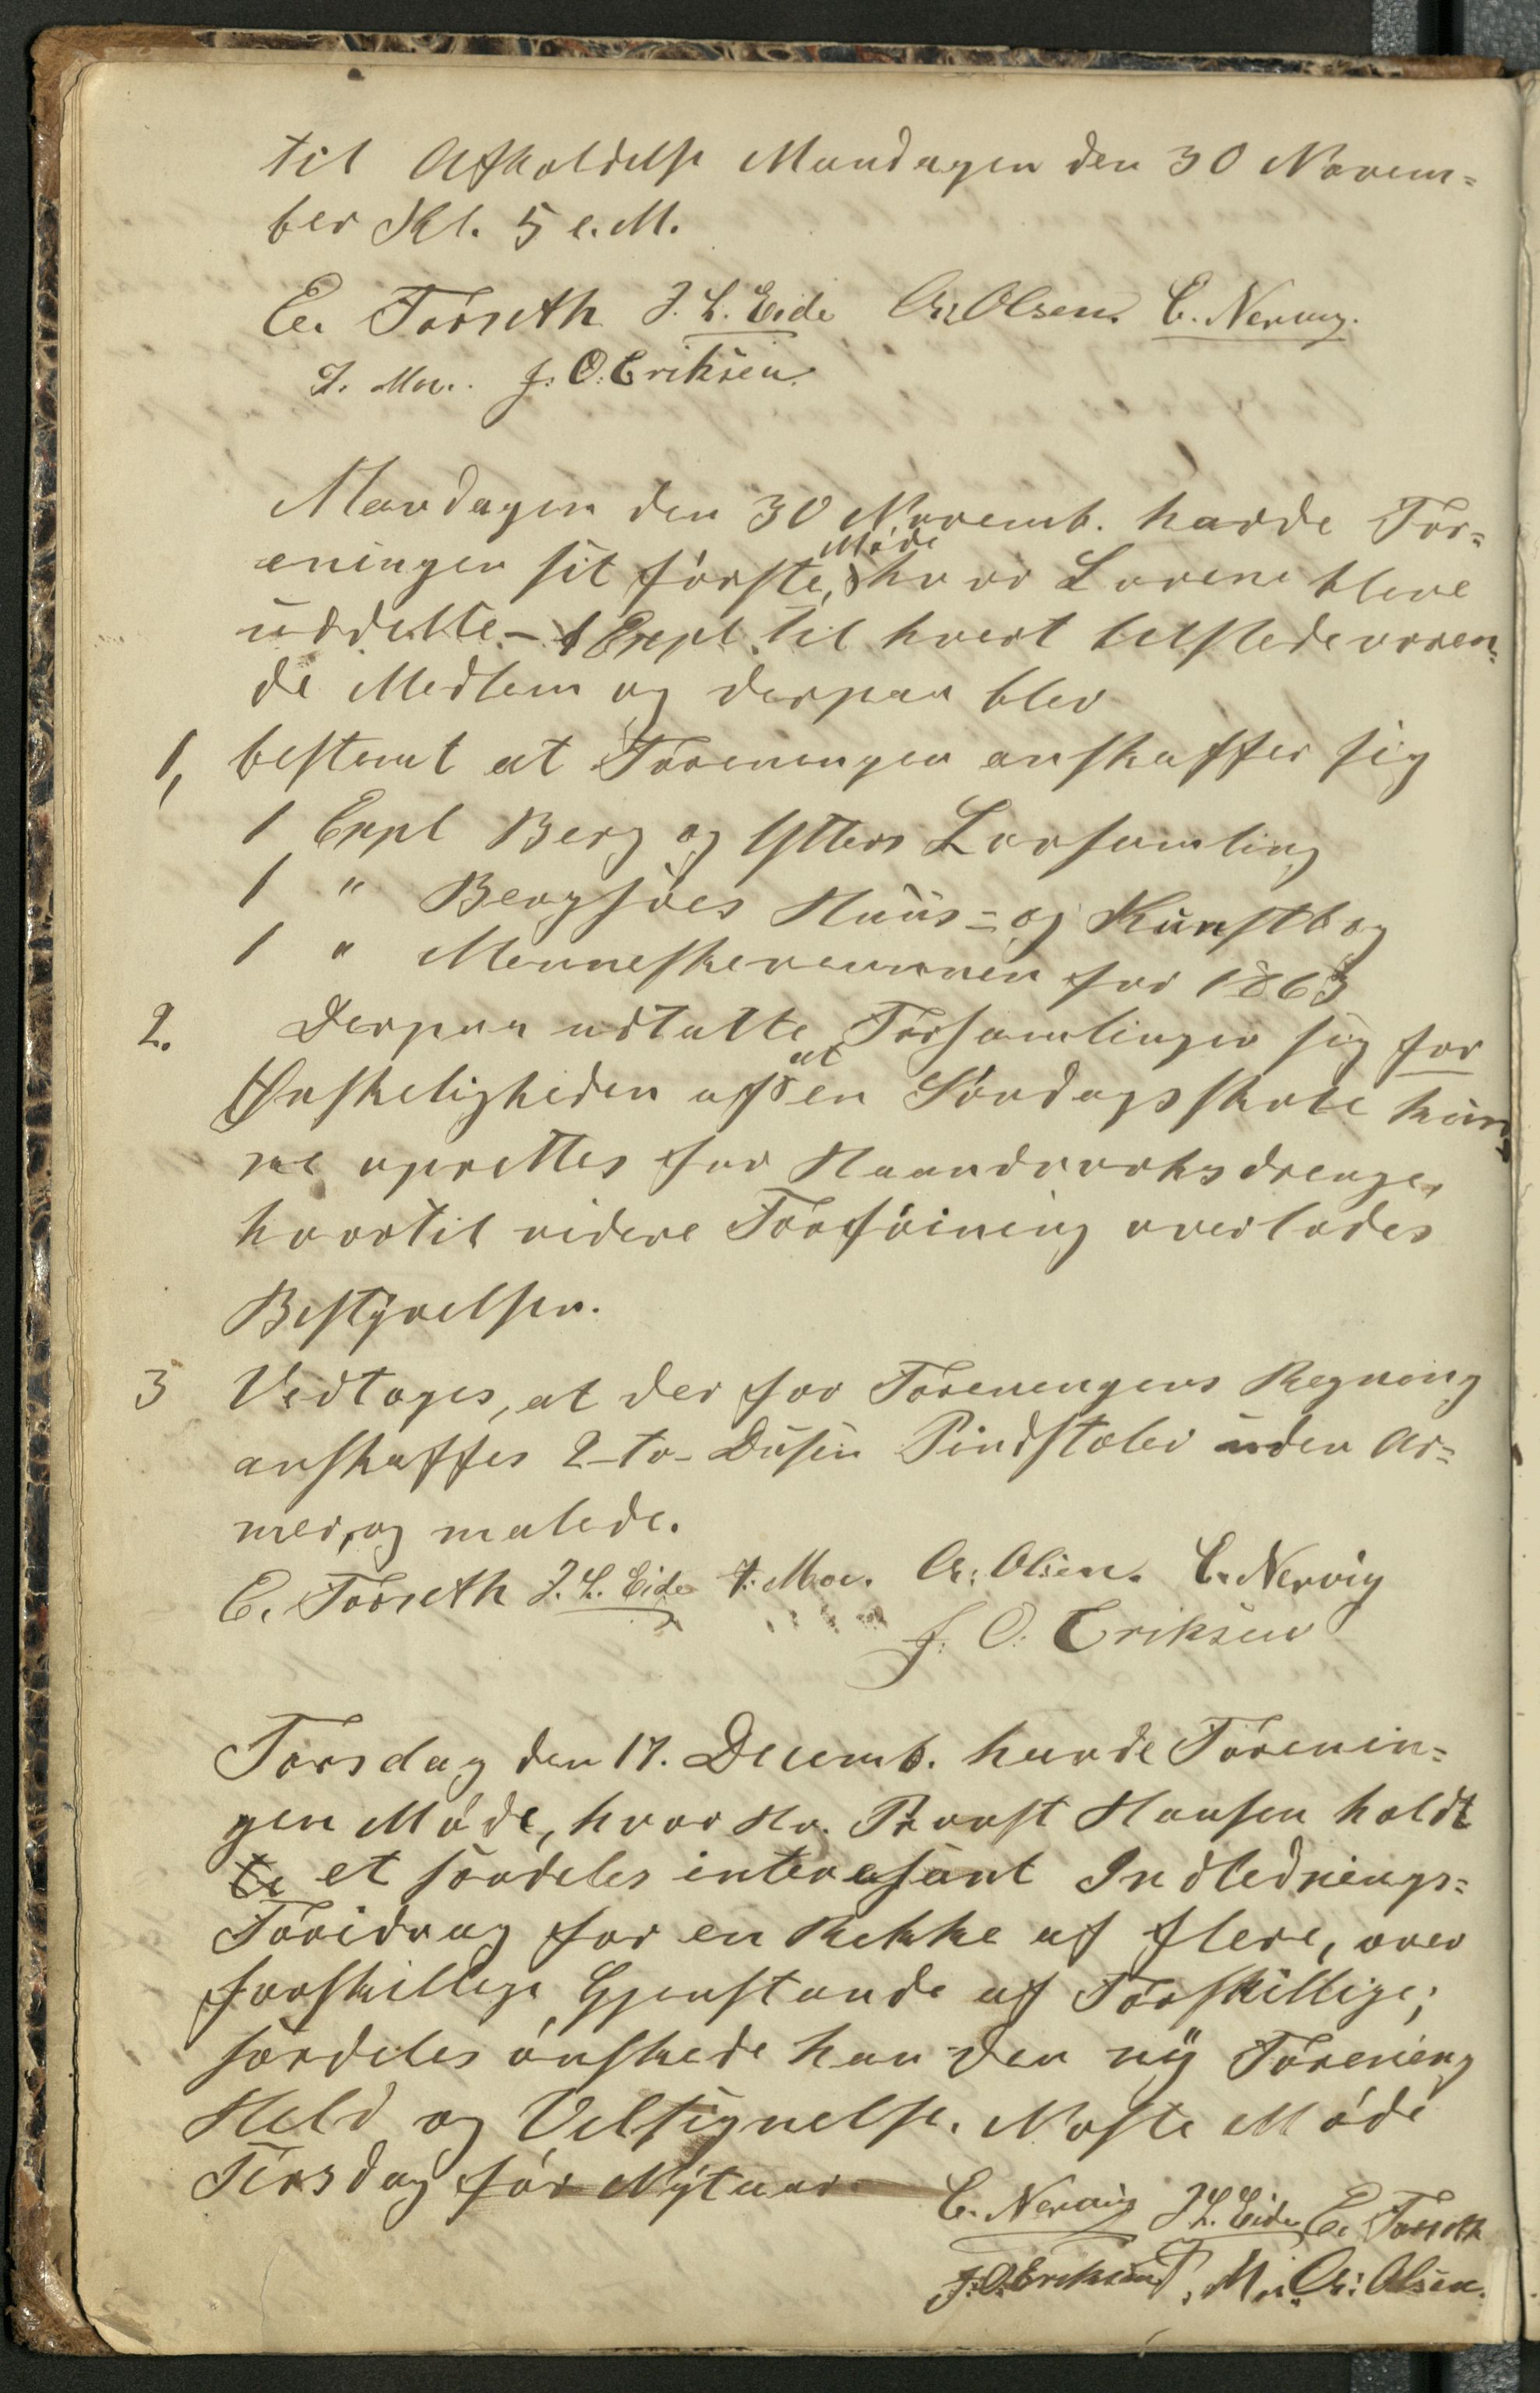 til Afholdelse Mandagen den 30 Novem=
ber Kl. 5 e. M.
E. Forseth J. L. Eide Chr. Olsen. C. Nervig.
T. Moe. J. O. Eriksen.
Mandagen den 30 Novemb. havde For=
eningen sit første, Møde hvor Lovene bleve
uddelte – 1 Expl. til hvert tilstedeværen=
de Medlem og derpaa blev
1, bestemt at Foreningen anskaffer sig
1 Expl Berg og Ytters Lovsamling
1 " Bergsøes Huus= og Kunstbog
1 " Menneskevennen for 1863
2. Derpaa udtalte Forsamlingen sig for
Ønskeligheden af at en Søndagsskole kun
ne oprettes for Haandværksdrenge,
hvortil videre Forføining overlodes
Bestyrelsen.
3 Vedtoges, at der for Foreningens Regning
anskaffes 2-to- Dusin Pindstoler uden Ar=
mer, og malede.
E. Forseth J. L. Eide T. Moe. Chr. Olsen. C. Nervig
J. O. Eriksen
Torsdag den 17. Decemb. havde Forenin=
gen Møde, hvor Hr. Provst Hansen holdt
te et særdeles interesant Indlednings=
Foridrag for en Rekke af flere, over
forskillige Gjenstande af Forskillige;
særdeles ønskede han den ny Forening
Held og Velsignelse. Næste Møde
Tirsdag før Nytaar
C. Nervig J. L. Eide E. Forseth
J. O. Eriksen T. Moe. Chr. Olsen.